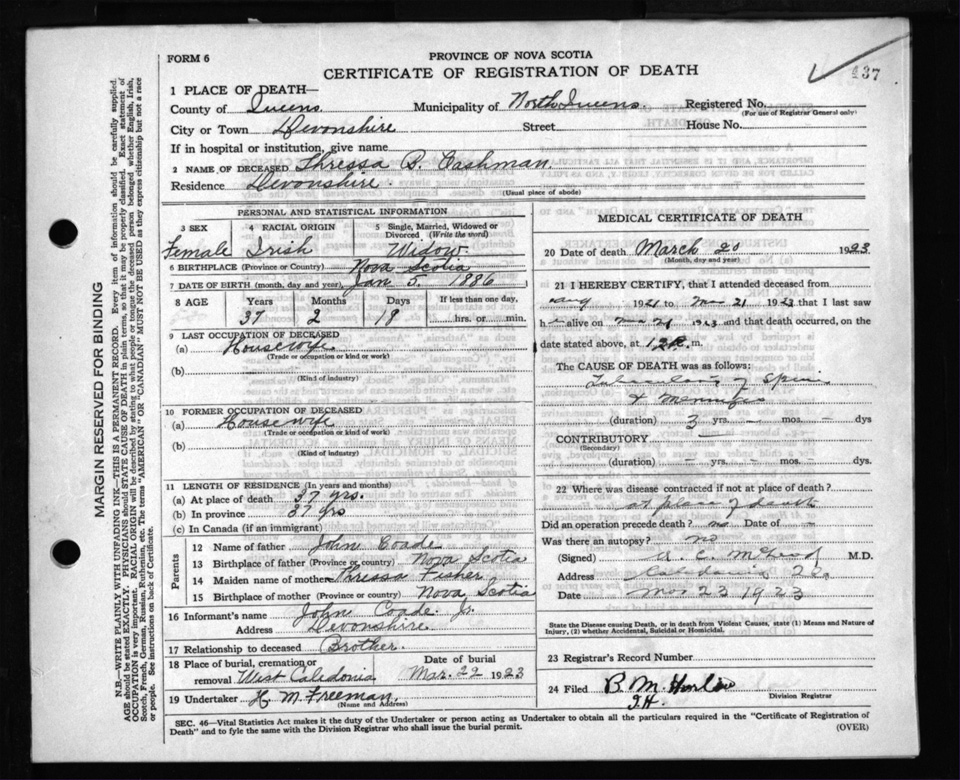 FORM 6
PROVINCE OF NOVA SCOTIA
CERTIFICATE OF REGISTRATION OF DEATH
437
1 PLACE OF DEATH—
County of Queens Municipality of North Queens Registered No.
(For use of Registrar General only)
City or Town Devonshire Street House No.
If in hospital or institution, give name
2 NAME OF DECEASED Thressa B. Cashman
Residence Devonshire.
(Usual place of abode)
PERSONAL AND STATISTICAL INFORMATION
3 SEX Female
4 RACIAL ORIGIN Irish
5 Single, Married, Widowed or Divorced (Write the word) Widow
6 BIRTHPLACE (Province or Country) Nova Scotia
7 DATE OF BIRTH (month, day and year) Jan 5. 1886
8 AGE Years 37 Months 2 Days 18 If less than one day. hrs. or min.
9 LAST OCCUPATION OF DECEASED
(a) Housewife
(Trade or occupation or kind or work)
(b)
(Kind of industry)
10 FORMER OCCUPATION OF DECEASED
(a) Housewife
(Trade or occupation or kind of work)
(b)
(Kind of industry)
11 LENGTH OF RESIDENCE (In years and months)
(a) At place of death 37 yrs.
(b) In province 37 yrs
(c) In Canada (if an immigrant)
Parents
12 Name of father John Coade
13 Birthplace of father (Province or country) Nova Scotia
14 Maiden name of mother Thressa Fisher
15 Birthplace of mother (Province or country) Nova Scotia
16 Informant's name John Coade Jr.
Address Devonshire
17 Relationship to deceased Brother
18 Place of burial, cremation or removal West Caledonia Date of burial Mar. 22 1923
19 Undertaker H. M. Freeman
(Name and Address)
MEDICAL CERTIFICATE OF DEATH
20 Date of death March 20 1923
(Month, day and year)
21 I HEREBY CERTIFY, that I attended deceased from
aug 1921 to Mar 21 1923 that I last saw
h alive on Mar 21 1923 and that death occurred, on
date stated above, at 12 m.
The CAUSE OF DEATH was as follows:
Tuberculosis of Spine
& Meninges
(duration) 3 yrs. – mos. dys
CONTRIBUTORY
(Secondary)
(duration) yrs. mos. dys.
22 Where was disease contracted if not at place of death?
at place of death
Did an operation precede death? no Date of
Was there an autopsy? no
(Signed) M.D.
Address Caledonia
Date Mar 23 1923
State the Disease causing Death, or in death from Violent Causes, state (1) Means and Nature of
Injury, (2) whether Accidental, Suicidal or Homicidal.
23 Registrar's Record Number
24 Filed B. M.
J.H.
Division Registrar
SEC. 46—Vital Statistics Act makes it the duty of the Undertaker or person acting as Undertaker to obtain all the particulars required in the "Certificate of Registration of
Death" and to fyle the same with the Division Registrar who shall issue the burial permit.
(OVER)
MARGIN RESERVED FOR BINDING
N.B.—WRITE PLAINLY WITH UNFADING INK—THIS IS A PERMANENT RECORD. Every item of information should be carefully supplied.
AGE should be stated EXACTLY. PHYSICIANS should STATE CAUSE OF DEATH in plain terms, so that it may be properly classified. Exact statement of
OCCUPATION is very important. RACIAL ORIGIN will be described by stating to what people or tongue the deceased person belonged whether English, Irish,
Scotch, French, German, Russian, Ruthenian, etc. The terms "AMERICAN" OR "CANADIAN" MUST NOT BE USED as they express citizenship but not a race
or people. See instructions on back of Certificate.